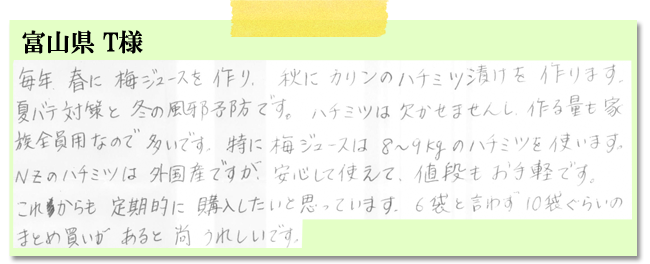 富山県 T様
毎年 春に 梅ジュースを 作り、 秋に カリンのハチミツ漬けを 作ります。
夏バテ対策と 冬の風邪予防です。 ハチミツは 欠かせませんし、作る量も 家
族全員用なので 多いです。 特に 梅ジュースは 8〜9kgのハチミツを 使います。
NZのハチミツは 外国産ですが、 安心して使えて、値段も お手軽です。
これからも 定期的に 購入したいと思っています。 6袋と言わず 10袋ぐらいの
まとめ買いが あると 尚 うれしいです。